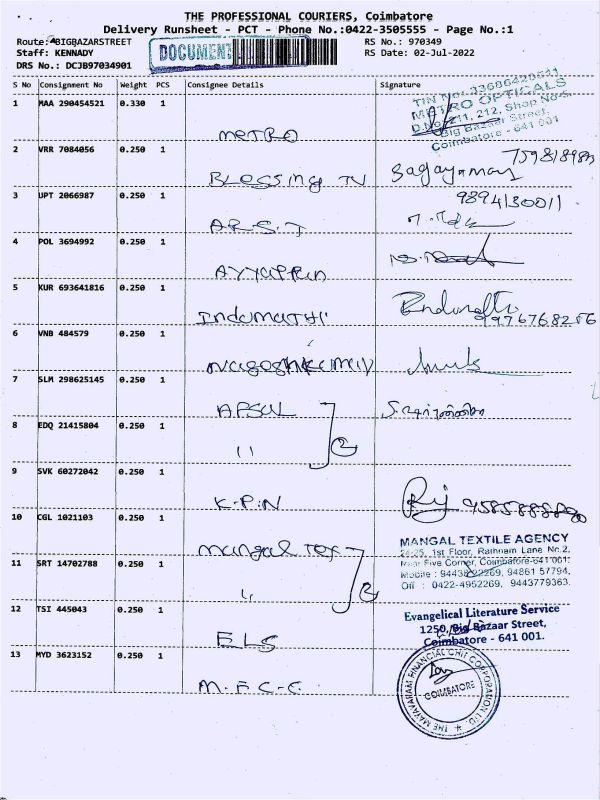 THE PROFESSIONAL COURIERS, Coimbatore
Delivery Runsheet - PCT - Phone No.:0422-3505555 - Page No.:1
Route: BIGBAZARSTREET
Staff: KENNADY
DRS No.: DCJB97034901
DOCUMENT
RS No.: 970349
RS Date: 02-Jul-2022
S No Consignment No Weight PCS Consignee Details Signature
1 MAA 290454521 0.330 1 METRO
METRO OPTICALS
D.No. 211, 212, Shop No-5,
Big Bazaar Street,
Coimbatore - 641 001
2 VRR 7084056 0.250 1 Blessing TV
3 UPT 2066987 0.250 1 A.R.S.T
9894130011
4 POL 3694992 0.250 1 AYYAPPAN
5 KUR 693641816 0.250 1 INDUMATHI
9976768256
6 VNB 484579 0.250 1
7 SLM 298625145 0.250 1 APSUL
8 EDQ 21415804 0.250 1 "
2
9 SVK 60272042 0.250 1 K.P.N
10 CGL 1021103 0.250 1 Mangal Tex
MANGAL TEXTILE AGENCY
24-25, 1st Floor, Rathnam Lane No.2,
Near Five Corner, Coimbatore-641 001.
11 SRT 14702788 0.250 1 "
2
Mobile : 94438 22269, 94861 57794,
Off : 0422-4952269, 9443779363.
12 TSI 445043 0.250 1 ELS
Evangelical Literature Service
1250, Big Bazaar Street,
Coimbatore - 641 001.
13 MYD 3623152 0.250 1 M.F.C.C.
THE MAYAVARAM FINANCIAL CHIT CORPORATION LTD.
COIMBATORE